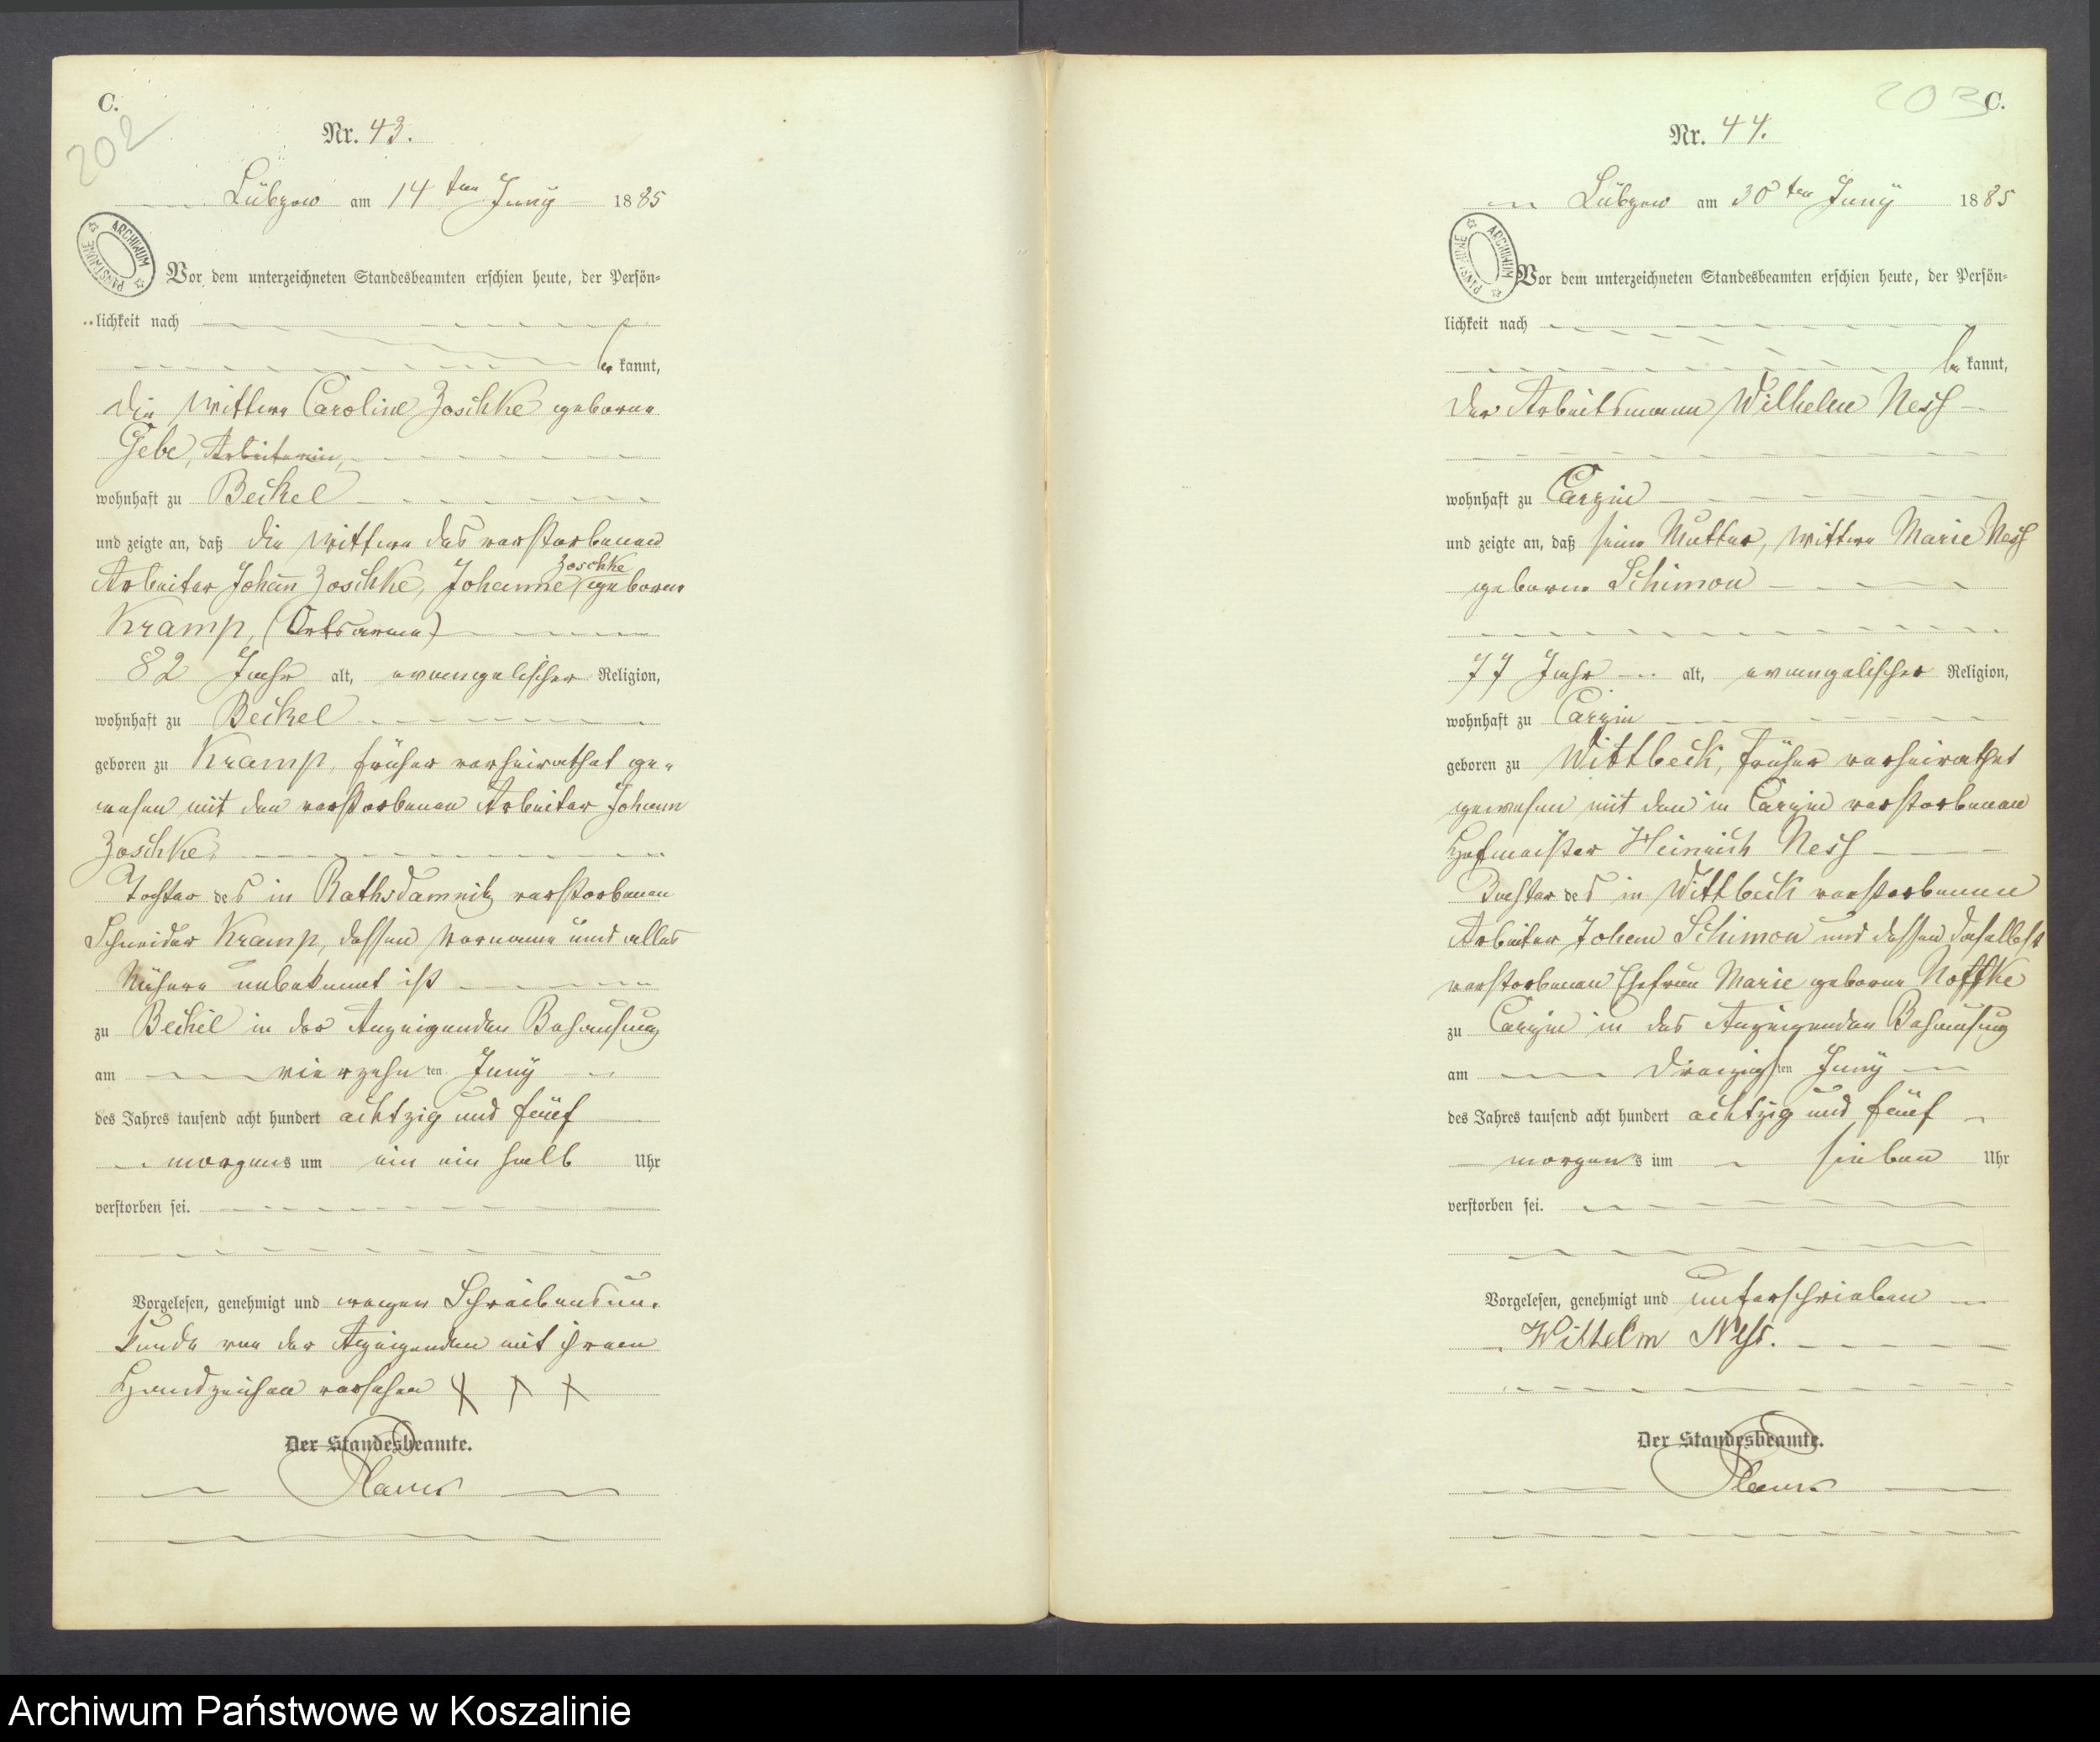 C.
202
Nr. 43.
Lübzow am 14ten Juny 1885
ARCHIWUM PAŃSTWOWE
Vor dem unterzeichneten Standesbeamten erschien heute, der Persön-
lichkeit nach
be kannt,
die Wittwe Caroline Zoschke geborne
Gebe, Arbeiterin,
wohnhaft zu Beckel
und zeigte an, daß die Wittwe des verstorbenen
Zoschke
Arbeiter Johann Zoschke, Johanne geborne
Kramp, (Ortsarme)
82 Jahr alt, evangelischer Religion,
wohnhaft zu Beckel
geboren zu Kramp, früher verheirathet ge-
wesen mit den verstorbenen Arbeiter Johann
Zoschke,
Tochter des in Rathsdamnitz verstorbenen
Schneider Kramp, dessen Vorname und alles
Nähere unbekannt ist
zu Beckel in der Anzeigenden Behausung
am vierzehn ten Juny
des Jahres tausend acht hundert achtzig und fünf
morgens um ein ein halb Uhr
verstorben sei.
Vorgelesen, genehmigt und wegen Schreibensun-
kunde von der Anzeigenden mit ihrem
Handzeichen versehen X X X
Der Standesbeamte.
C.
203
Nr. 44.
Lübzow am 30ten Juny 1885
ARCHIWUM PAŃSTWOWE
Vor dem unterzeichneten Standesbeamten erschien heute, der Persön-
lichkeit nach
be kannt,
der Arbeitsmann Wilhelm Ness
wohnhaft zu Carzin
und zeigte an, daß seine Mutter, Wittwe Marie Ness
geborne Schimon
77 Jahr alt, evangelischer Religion,
wohnhaft zu Carzin
geboren zu Wittbeck, früher verheirathet
gewesen mit den in Carzin verstorbenen
Hofmeister Heinrich Ness
Tochter des in Wittbeck verstorbenen
Arbeiter Johann Schimon und dessen daselbst
verstorbenen Ehefrau Marie geborne Noffke
zu Carzin in des Anzeigenden Behausung
am dreizigs ten Juny
des Jahres tausend acht hundert achtzig und fünf
morgens um sieben Uhr
verstorben sei.
Vorgelesen, genehmigt und unterschrieben
Wilhelm Ness.
Der Standesbeamte.
Archiwum Państwowe w Koszalinie